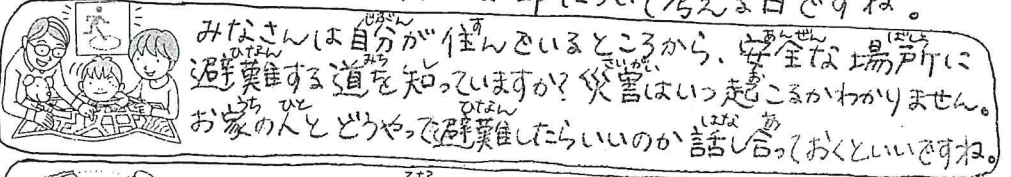 について考える日ですね。
みなさんは自分が住んでいるところから、安全な場所に
避難する道を知っていますか?災害はいつ起こるかわかりません。
お家の人とどうやって避難したらいいのか話し合っておくといいですね。